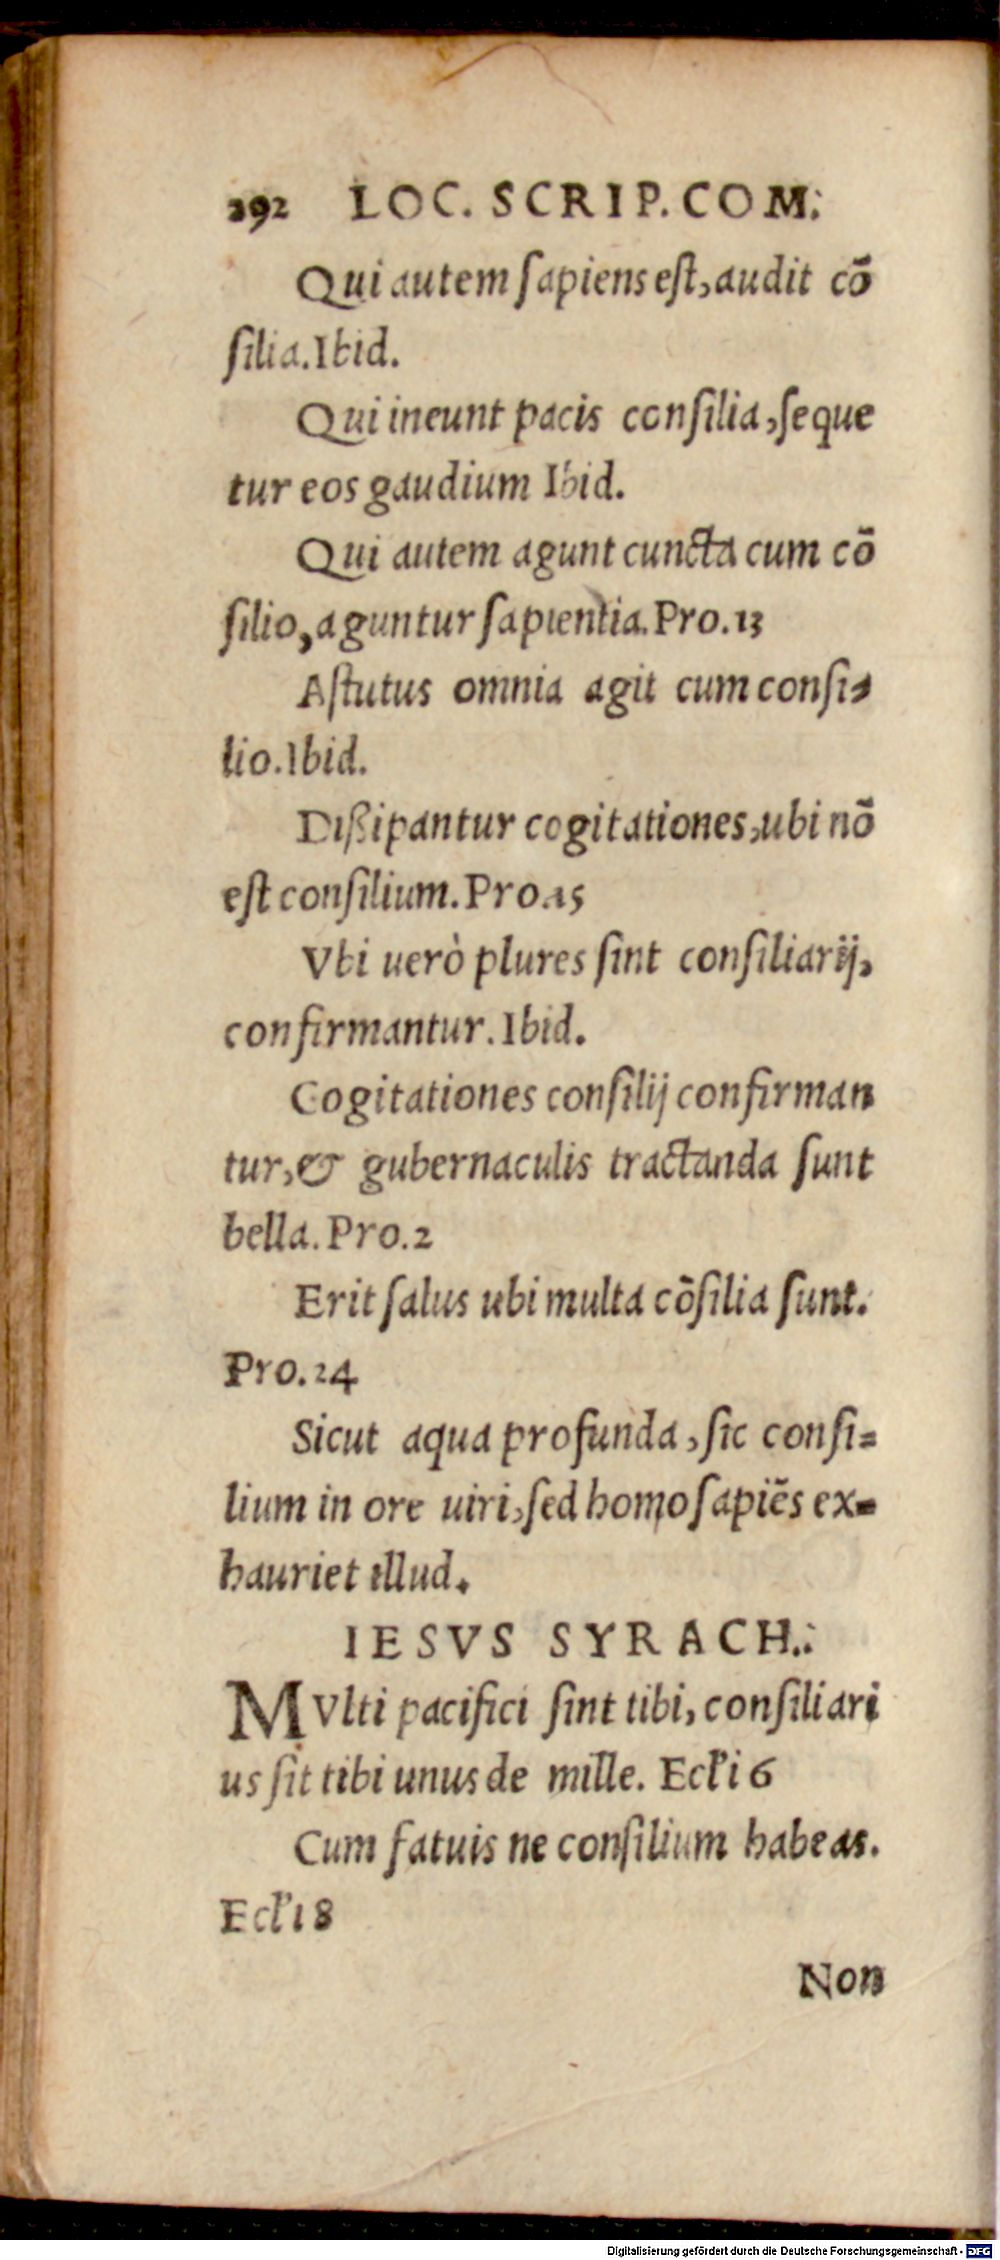 292 LOC. SCRIP. COM.
Qui autem ſapiens eſt, audit cō
ſilia. Ibid.
Qui ineunt pacis conſilia, ſeque
tur eos gaudium Ibid.
Qui autem agunt cuncta cum cō
ſilio, aguntur ſapientia. Pro. 13
Aſtutus omnia agit cum conſi-
lio. Ibid.
Dißipantur cogitationes, ubi nō
eſt conſilium. Pro. 15
Vbi uerò plures ſint conſiliarij,
confirmantur. Ibid.
Cogitationes conſilij confirman
tur, & gubernaculis tractanda ſunt
bella. Pro. 2
Erit ſalus ubi multa cōſilia ſunt.
Pro. 24
Sicut aqua profunda, ſic conſi-
lium in ore uiri, ſed homo ſapiēs ex-
hauriet illud.
IESVS SYRACH.
MVlti pacifici ſint tibi, conſiliari
us ſit tibi unus de mille. Ecľi 6
Cum fatuis ne conſilium habeas.
Ecľi 8
Non
Digitalisierung gefördert durch die Deutsche Forschungsgemeinschaft - DFG